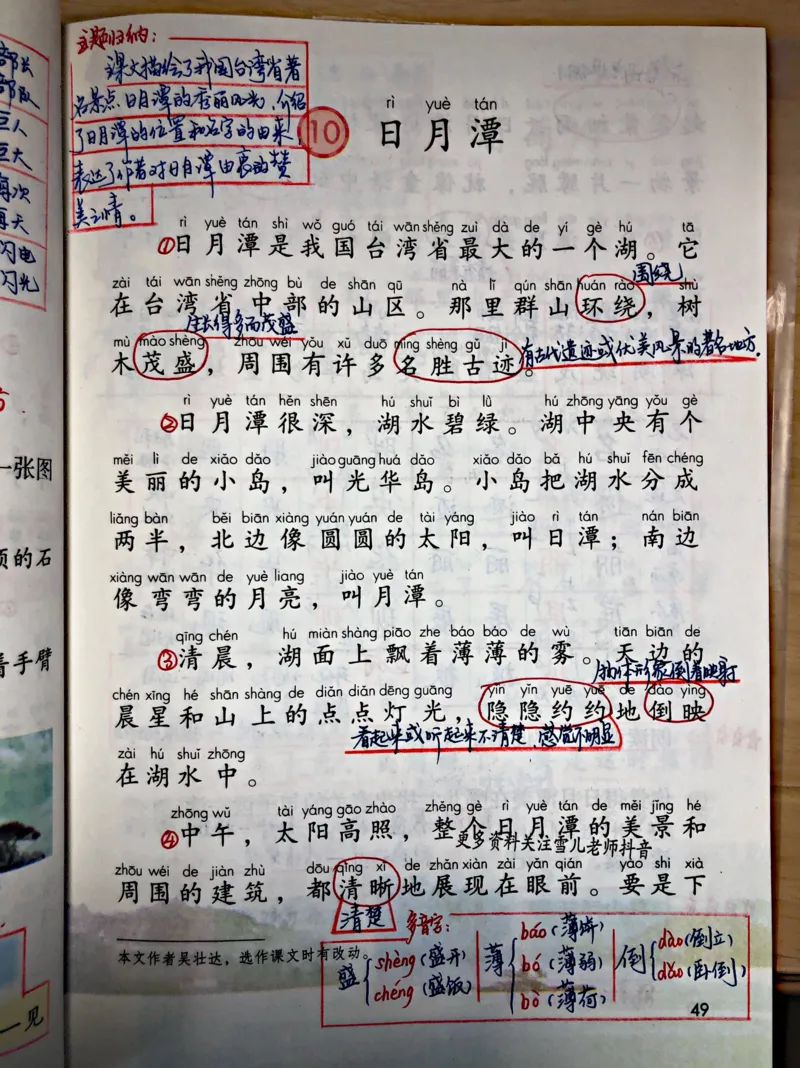 部长
部队
巨人
巨大
每次
每天
闪电
闪光
一张图
的石
手臂
一见
主题归纳：
课文描绘了我国台湾省著
名景点日月潭的秀丽风光，介绍
了日月潭的位置和名字的由来，
表达了作者对日月潭由衷的赞
美之情。
rì yuè tán
10 日月潭
rì yuè tán shì wǒ guó tái wān shěng zuì dà de yí gè hú tā
①日月潭是我国台湾省最大的一个湖。它
围绕
zài tái wān shěng zhōng bù de shān qū nà lǐ qún shān huán rào shù
在台湾省中部的山区。那里群山环绕，树
生长得多而茂盛
mù mào shèng zhōu wéi yǒu xǔ duō míng shèng gǔ jì
木茂盛，周围有许多名胜古迹。
有古代遗迹或优美风景的著名地方.
rì yuè tán hěn shēn hú shuǐ bì lǜ hú zhōng yāng yǒu gè
②日月潭很深，湖水碧绿。湖中央有个
měi lì de xiǎo dǎo jiào guāng huá dǎo xiǎo dǎo bǎ hú shuǐ fēn chéng
美丽的小岛，叫光华岛。小岛把湖水分成
liǎng bàn běi biān xiàng yuán yuán de tài yáng jiào rì tán nán biān
两半，北边像圆圆的太阳，叫日潭；南边
xiàng wān wān de yuè liang jiào yuè tán
像弯弯的月亮，叫月潭。
qīng chén hú miàn shàng piāo zhe báo báo de wù tiān biān de
③清晨，湖面上飘着薄薄的雾。天边的
物体形象倒着映射
chén xīng hé shān shàng de diǎn diǎn dēng guāng yǐn yǐn yuē yuē de dào yìng
晨星和山上的点点灯光，隐隐约约地倒映
看起来或听起来不清楚，感觉不明显
zài hú shuǐ zhōng
在湖水中。
zhōng wǔ tài yáng gāo zhào zhěng gè rì yuè tán de měi jǐng hé
④中午，太阳高照，整个日月潭的美景和
更多资料关注雪儿老师抖音
zhōu wéi de jiàn zhù dōu qīng xī de zhǎn xiàn zài yǎn qián yào shi xià
周围的建筑，都清晰地展现在眼前。要是下
清楚
本文作者吴壮达，选作课文时有改动。
多音字：
盛 shèng（盛开） chéng（盛饭）
薄 báo（薄饼） bó（薄弱） bò（薄荷）
倒 dào（倒立） dǎo（卧倒）
49